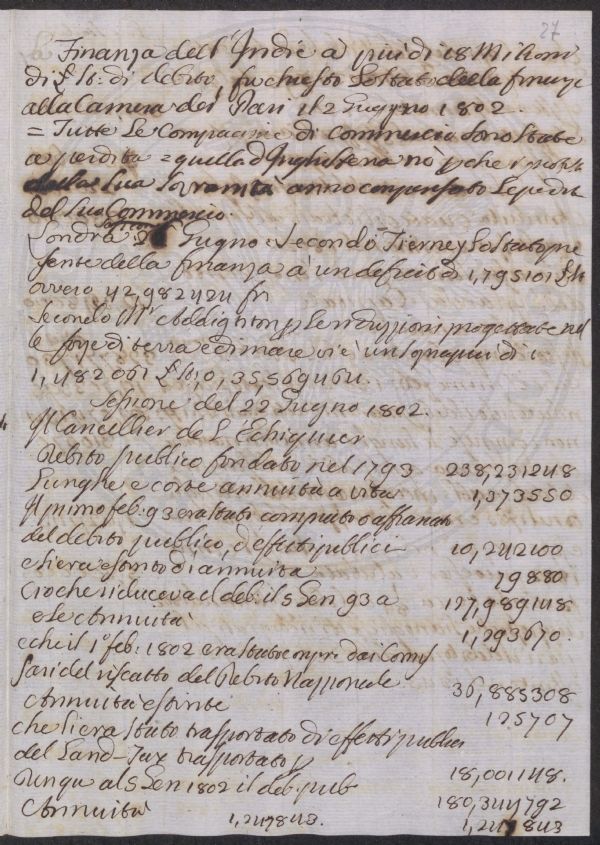 27
Finanza dell'Indie à piu di 18 Milioni
di L. st: di debito, fu chiesto lo stato della finanze
alla Camera dei Pari il 2 Giugno 1802.
= Tutte le Compagnie di commercio sono state
a perdita = quella d'Inghilterra nò pche i profitti
della sua sovranità anno compensato le perdite
del suo Commercio.
Londra Giugno. Secondo Tierney lo stato pre
sente della finanza à un deficit di 1,795101 L. st
ovvero 42,982424 fr
Secondo Mr Addington p le riduzzioni progettate nel
le forze di terra e di mare vi è un di
1,482061 L. st, o, 35,569464.
Sessione del 22 Giugno 1802.
Il Cancellier de l'Echiquier
Debito publico fondato nel 1793 238,231248
Lunghe e corte annuità a vita 1,373550
Il primo feb: 93 era stato comprato o affrancato
del debito publico, d'effetti publici 10,242100
e si era estinto di annuità 79880
Cioche riduceva el deb: il 5 Gen 93 a 127,989148.
e le Annuità 1,293670.
e che il 1º feb: 1802 era stato compr dai Comis
sari del riscatto del Debito Nazionale 36,885308
Annuità estinte 125707
che si era stato trasportato di effetti publici
del Land-Tax trasportato p 18,001148.
Dunqu al 5 Gen 1802 il deb pub 180,344792
Annuità 1,247843. 1,247843